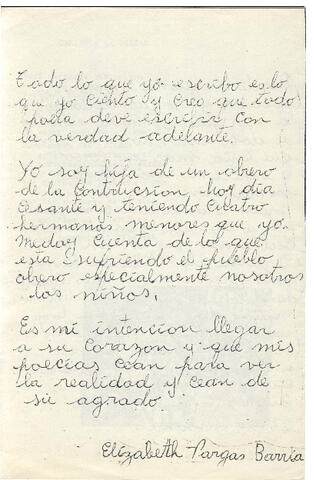 Todo lo que yo escribo es lo
que yo ciento y creo que todo
poeta deve escribir con
la verdad adelante.
Yo soy hija de un obrero
de la contrucsion hoy dia
cesante y teniendo cuatro
hermanos menores que yo.
me doy cuenta de lo que
esta sufriendo el pueblo
obrero especialmente nosotros
los niños.
Es mi intencion llegar
a su corazon y que mis
poecias cean para ver
la realidad y cean de
su agrado.
Elizabeth Vargas Barria